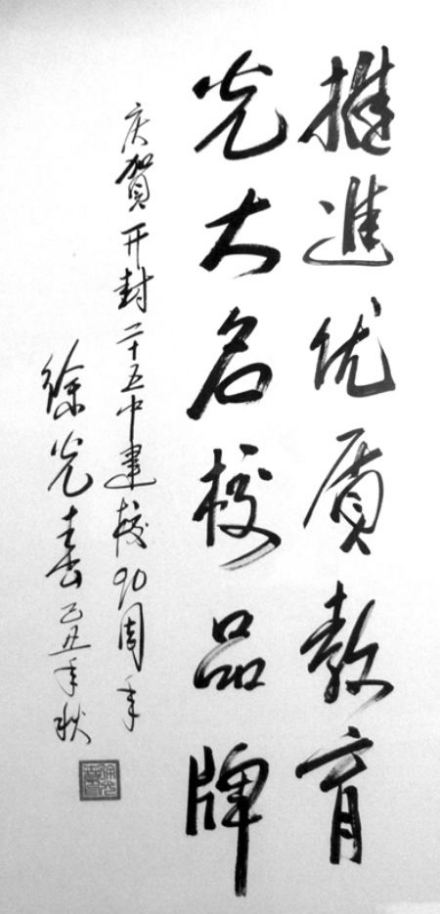 推進优质教育
光大名校品牌
庆賀开封二十五中建校90周年
徐光春己丑年秋